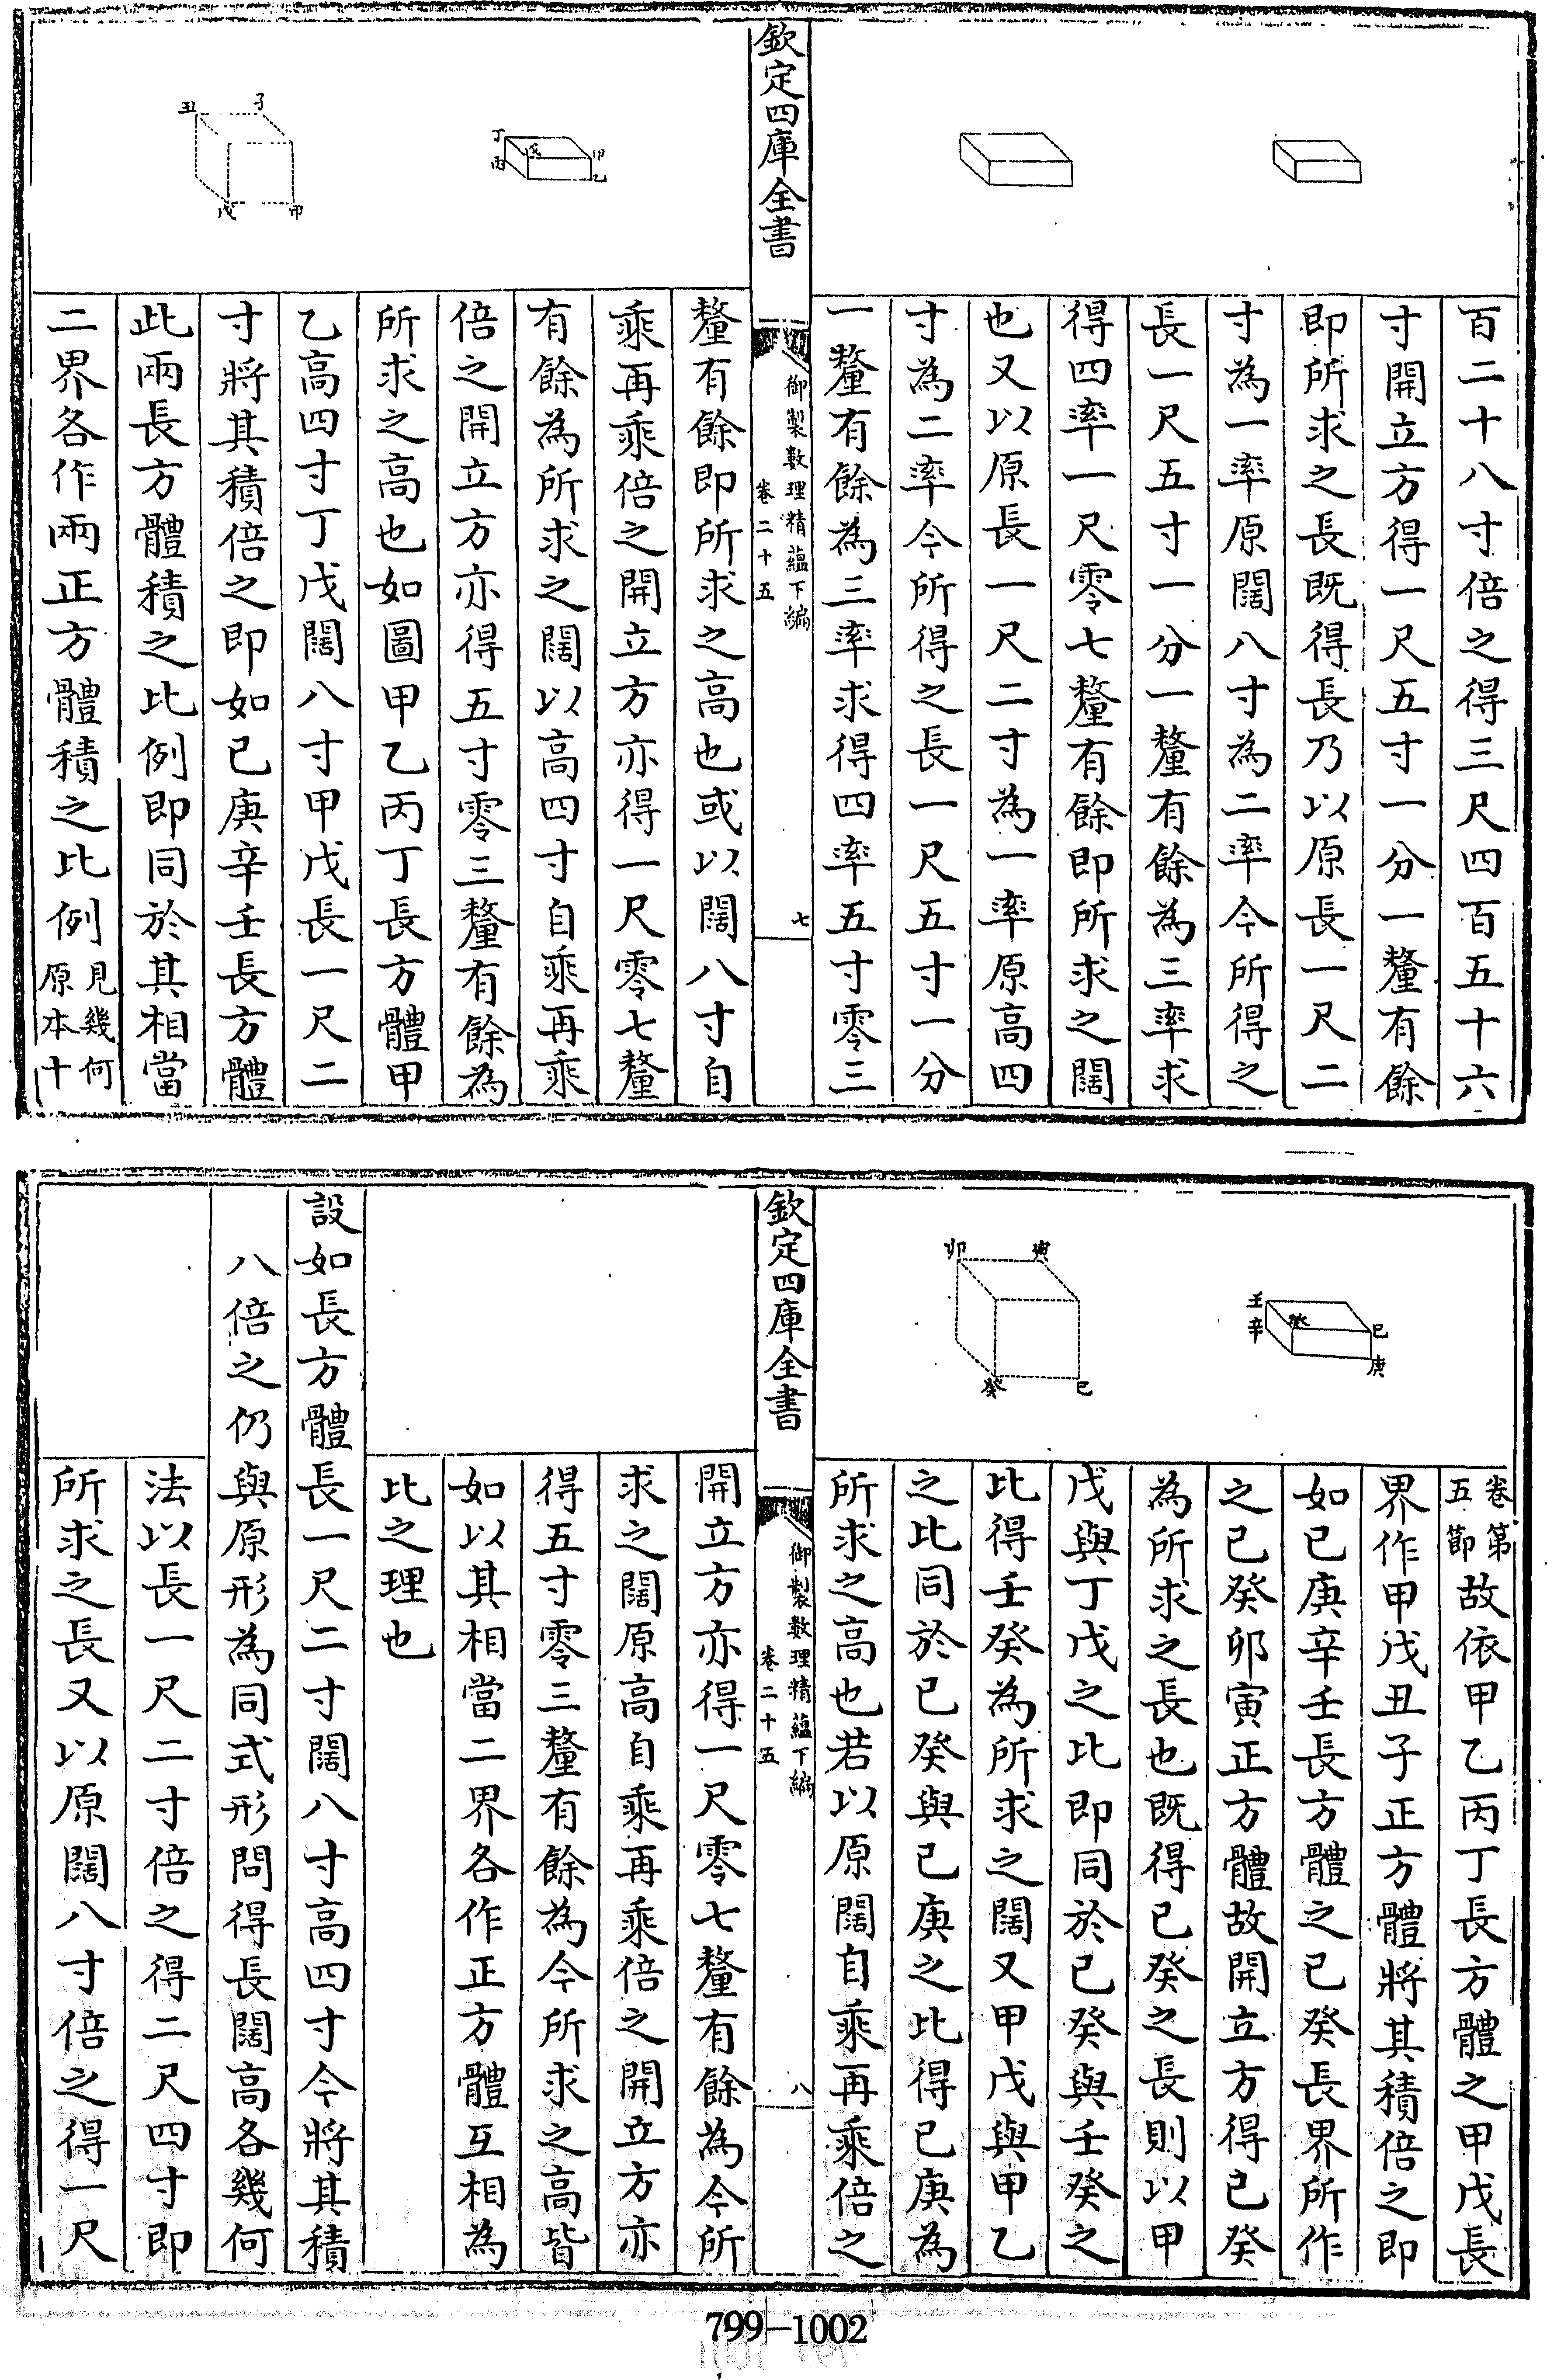 百二十八寸倍之得三尺四百五十六
寸開立方得一尺五寸一分一釐有餘
即所求之長既得長乃以原長一尺二
寸為一率原闊八寸為二率今所得之
長一尺五寸一分一釐有餘為三率求
得四率一尺零七釐有餘即所求之闊
也又以原長一尺二寸為一率原高四
寸為二率今所得之長一尺五寸一分
一釐有餘為三率求得四率五寸零三
欽定四庫全書
御製數理精蘊下編
卷二十五
七
釐有餘即所求之高也或以闊八寸自
乘再乘倍之開立方亦得一尺零七釐
有餘為所求之闊以高四寸自乘再乘
倍之開立方亦得五寸零三釐有餘為
所求之高也如圖甲乙丙丁長方體甲
乙高四寸丁戊闊八寸甲戊長一尺二
寸將其積倍之即如已庚辛壬長方體
此兩長方體積之比例即同於其相當
二界各作兩正方體積之比例見幾何
原本十
丁
丙
戊
甲
乙
丑
子
戊
甲
卷第
五節故依甲乙丙丁長方體之甲戊長
界作甲戊丑子正方體將其積倍之即
如已庚辛壬長方體之已癸長界所作
之已癸卯寅正方體故開立方得已癸
為所求之長也既得已癸之長則以甲
戊與丁戊之比即同於已癸與壬癸之
比得壬癸為所求之闊又甲戊與甲乙
之比同於已癸與已庚之比得已庚為
所求之高也若以原闊自乘再乘倍之
壬
辛
癸
已
庚
卯
寅
癸
已
欽定四庫全書
御製數理精蘊下編
卷二十五
八
開立方亦得一尺零七釐有餘為今所
求之闊原高自乘再乘倍之開立方亦
得五寸零三釐有餘為今所求之高皆
如以其相當二界各作正方體互相為
比之理也
設如長方體長一尺二寸闊八寸高四寸今將其積
八倍之仍與原形為同式形問得長闊高各幾何
法以長一尺二寸倍之得二尺四寸即
所求之長又以原闊八寸倍之得一尺
799-1002